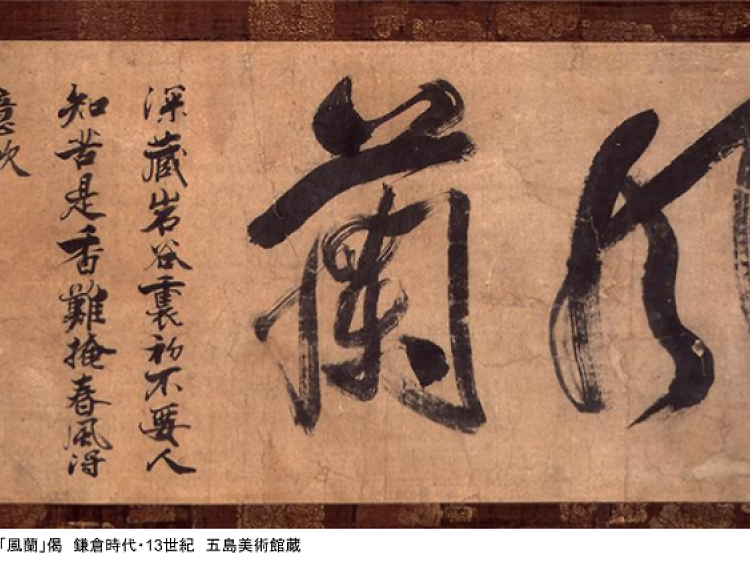 風蘭
深蔵岩谷裏初不要人
知苦是香難掩春風得
意吹
「風蘭」偈　鎌倉時代・13世紀　五島美術館蔵